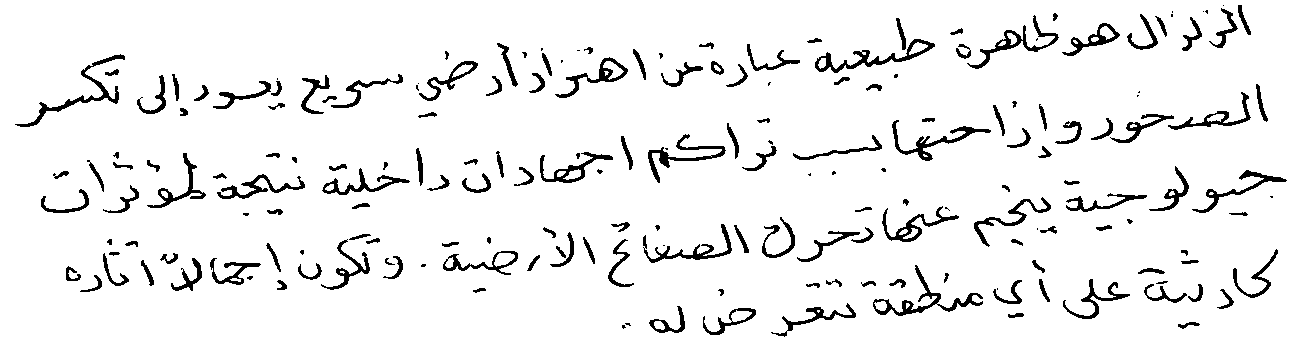 الزلزال هو ظاهرة طبيعية عبارة عن اهتزاز أرضي سريع يعود إلى تكسر
الصخور وإزاحتها بسبب تراكم اجهادات داخلية نتيجة لمؤثرات
جيولوجية ينجم عنها تحرك الصفائح الأرضية. وتكون إجمالاً اثاره
كارثية على أي منطقة تتعرض له.